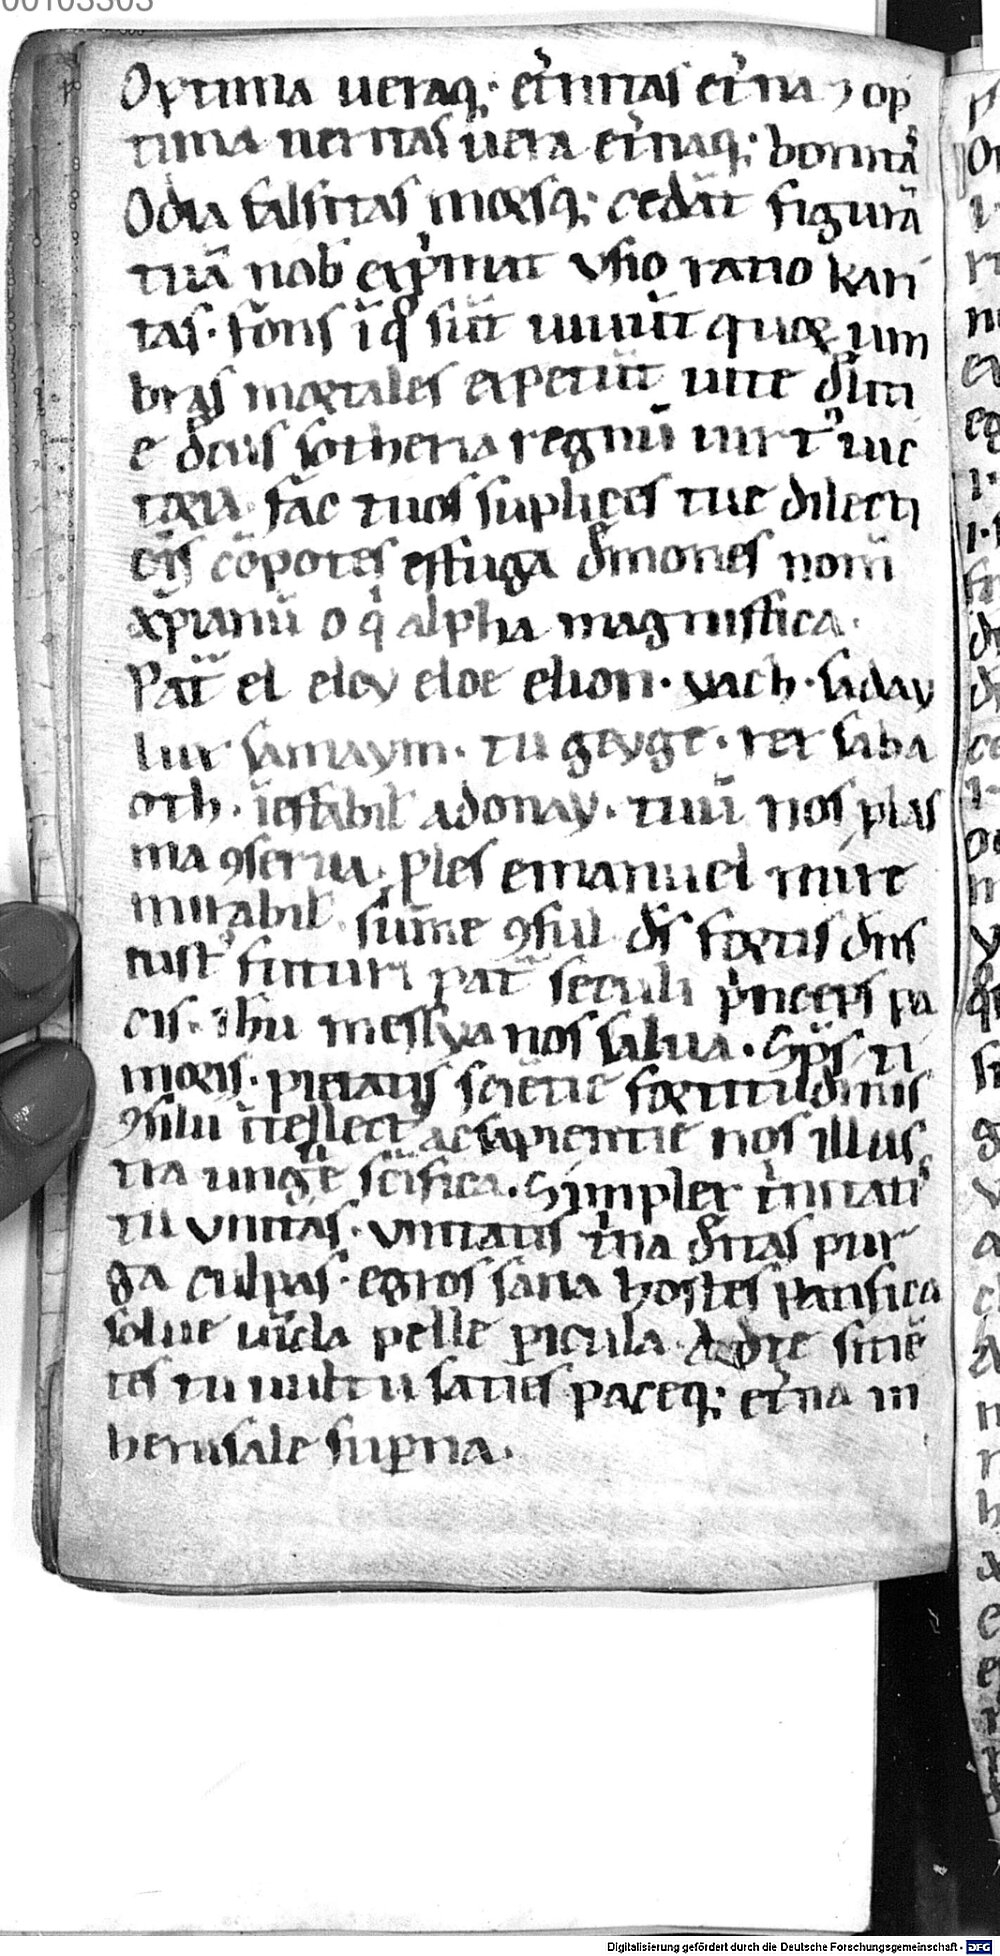 00103303
Optima ueraq; et̓nitas et̓na ⁊ op
tima ueritas uera et̓naq; bonita
Odia falsitas morsq; cedāt figurā
tuā nob̄ exp̓mat visio ratio kari
tas. fōns ī q͛ sūt uiuūt quoꝝ um
bras mortales expetūt uite diuiti
e
sotheria regnū
fac tuos suplices tue dilecti
cōpotes effuga demones nom̄
xp̄ianū o q̓ alpha magnifica.
Pat̄ el eloy eloe elion. yach. saday
lux samaym. tu geyge. rex saba
oth. īeffabil̄ adonay. tuū nos plas
ma ꝯserua. ples emanuel mire
mirabil̄. sūme ꝯsul d̄s fortis dn̄s
futuri pat̄ seculi p̓nceps pa
cis. ih̄u messya nos salua. Sp̄s ti
moris. pietatis sciētie fortitudinis
ꝯsilii ītellect᷒ ac sapientie nos illus
tra unge sc̄ifica. Simplex t̓nitati᷒
tu vnitas. vnitatis t̓na d̄itas pur
ga culpas. egros sana hostes pacifica
solue uīcla pelle ꝑicula. sitiē
tes tu uultu saties paceq; et̓na in
herusale suꝑna.
Digitalisierung gefördert durch die Deutsche Forschungsgemeinschaft - DFG